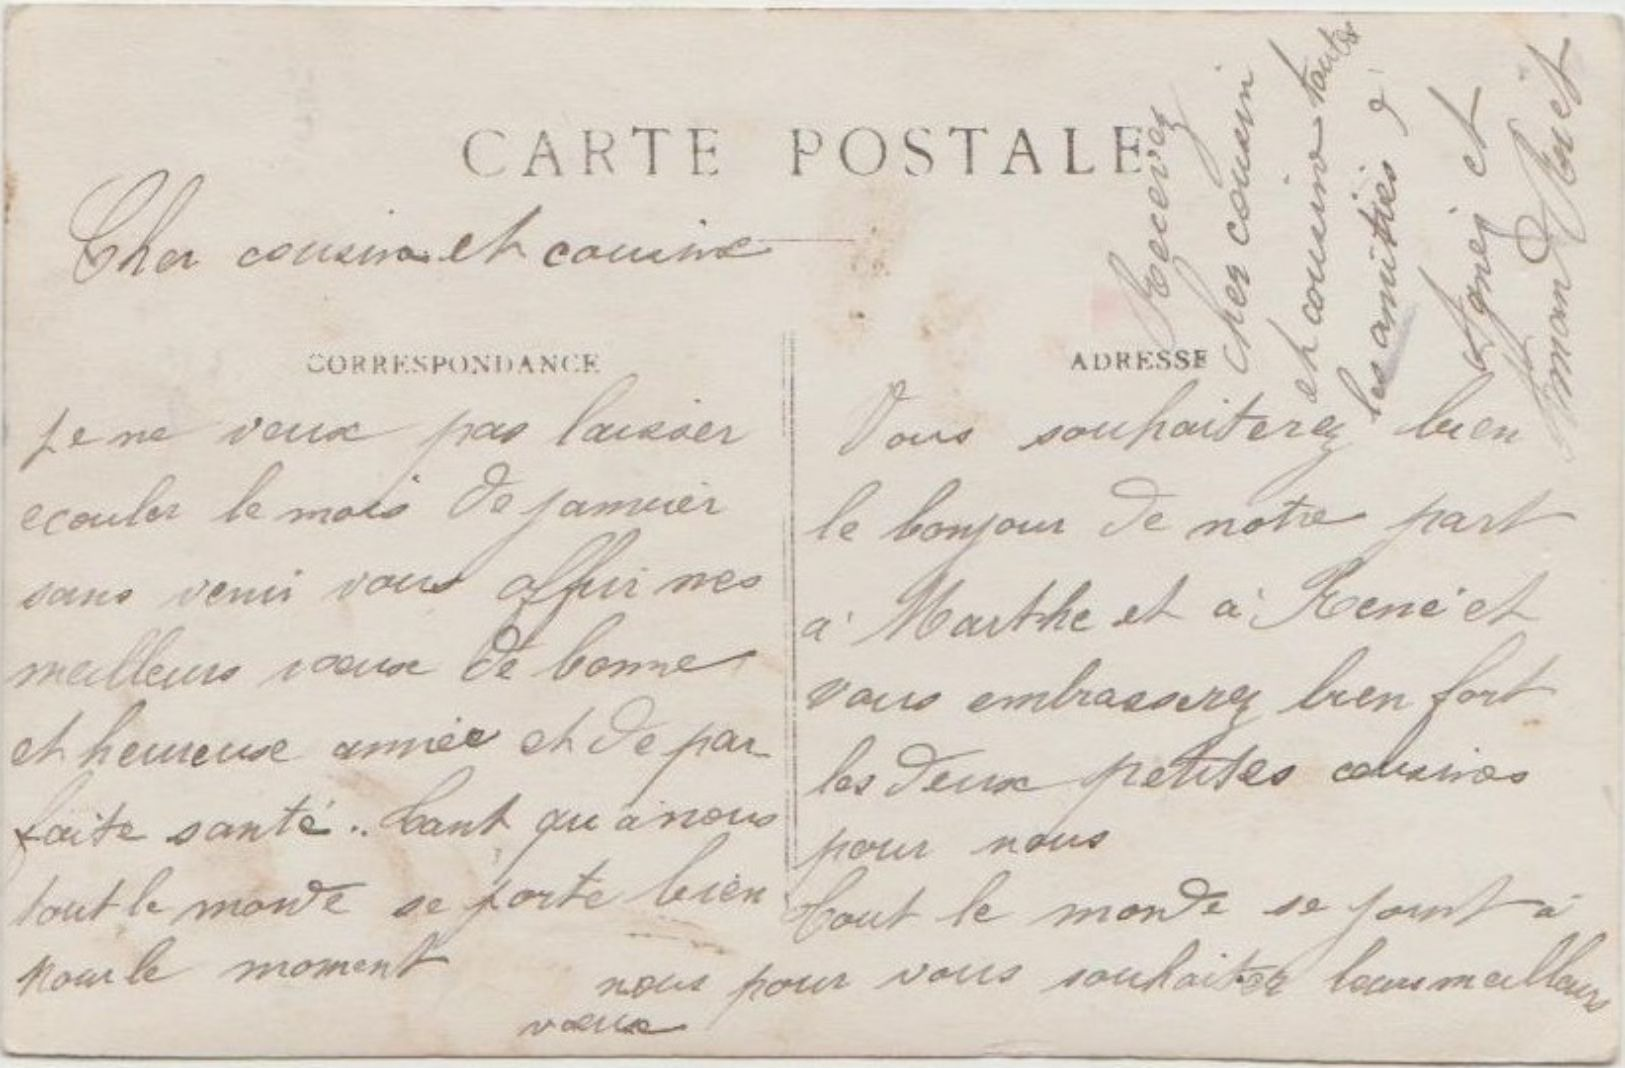 CARTE POSTALE
Cher cousin et cousine
CORRESPONDANCE
ADRESSE
Je ne veux pas laisser
ecouler le mois de janvier
sans venir vous offrir mes
meilleurs vœux de bonne
et heureuse année et de par
faite santé.. Tant qu'à nous
tout le monde se porte bien
pour le moment
Vous souhaiterez bien
le bonjour de notre part
à Marthe et à René et
vous embrasserez bien fort
les deux petites cousines
pour nous
Tout le monde se joint à
nous pour vous souhaiter leurs meilleurs
vœux
Recevez
cher cousin
et cousine toutes
les amitiés d'
Agnès et